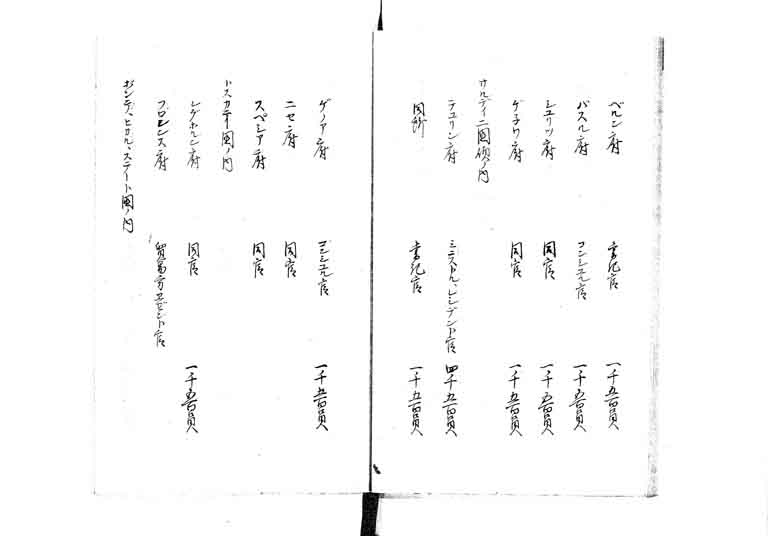 ベルン府 書記官 一千五百員
バスル府 コンシユル官 一千五百員
シユリツ府 同官 一千五百員
ゲネワ府 同官 一千五百員
サルディニ国領ノ内
テユリン府 ミニストル、レシデント官 四千五百員
同所 書記官 一千五百員
ゲノア府 コンシユル官 一千五百員
ニセ府 同官
スペシア府 同官
トスカナー国ノ内
レグホルン府 同官 一千五百員
フロレンス府 貿易方エゼント官
ポンテ、ヒカル、ステート国ノ内